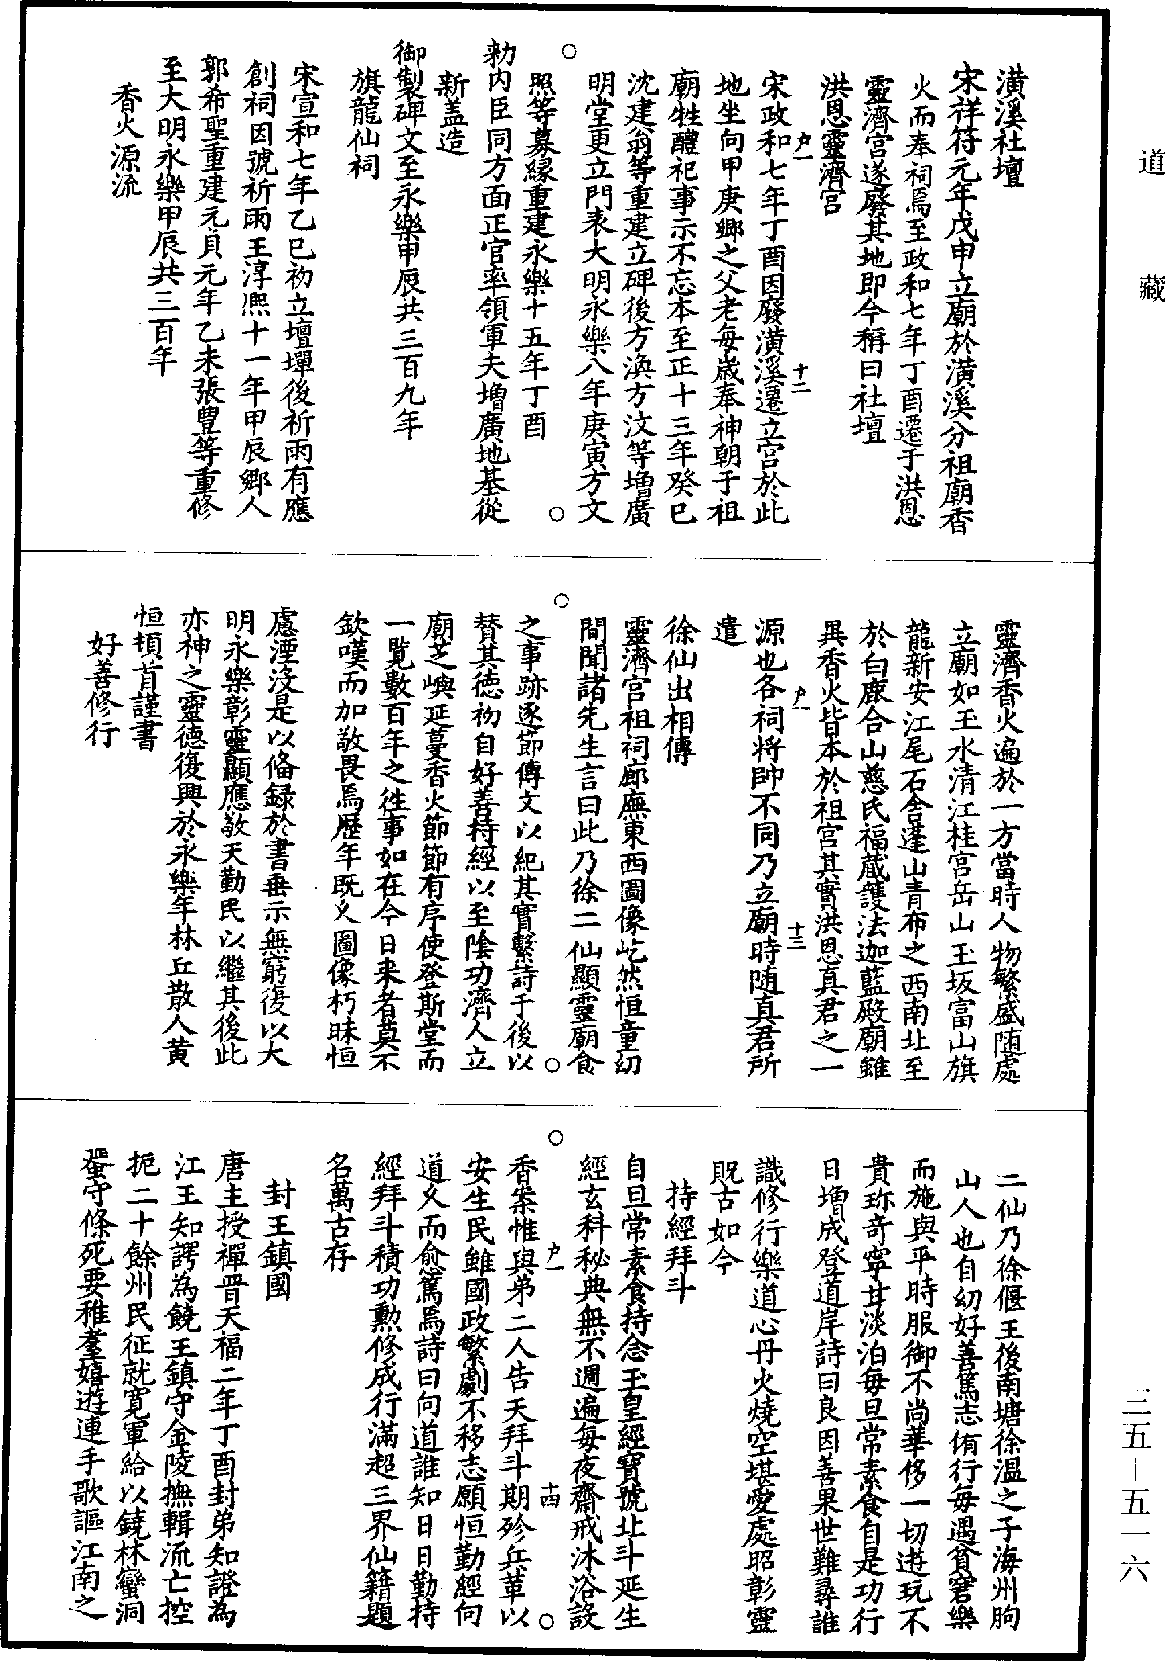 道藏
潢溪社壇
宋祥符元年戊申立廟於潢溪分祖廟香
火而奉祠焉至政和七年丁酉遷于洪恩
靈濟宮遂廢其地即今稱曰社壇
洪恩靈濟宮
宋政和七年丁酉因廢潢溪遷立宮於此
地坐向甲庚鄉之父老每歲奉神朝于祖
廟牲醴祀事示不忘本至正十三年癸巳
沈建翁等重建立碑後方渙方汶等增廣
明堂更立門表大明永樂八年庚寅方文
照等募緣重建永樂十五年丁酉
勑內臣同方面正官率領軍夫增廣地基從
新盖造
御製碑文至永樂甲辰共三百九年
旗龍仙祠
宋宣和七年乙巳初立壇墠後祈雨有應
創祠因號祈雨王淳熙十一年甲辰鄉人
郭希聖重建元貞元年乙未張豊等重修
至大明永樂甲辰共三百年
香火源流
靈濟香火遍於一方當時人物繁盛随處
立廟如玉水清江桂宮岳山玉坂富山旗
龍新安江尾石舍蓬山青布之西南北至
於白鹿合山慈氏福藏護法迦藍殿廟雖
異香火皆本於祖宮其實洪恩真君之一
源也各祠將帥不同乃立廟時随真君所
遣
徐仙出相傳
靈濟宮祖祠廊廡東西圖像屹然恒童幼
間聞諸先生言曰此乃徐二仙顯靈廟食
之事跡逐節傳文以紀其實繫詩于後以
賛其德初自好善持經以至陰功濟人立
廟芝嶼延蔓香火節節有序使登斯堂而
一覽數百年之徃事如在今日来者莫不
欽嘆而加敬畏焉歷年既乆圖像朽昧恒
慮湮没是以俻録於書垂示無窮復以大
明永樂彰靈顯應敬天勤民以繼其後此
亦神之靈德復興於永樂年林丘散人黄
恒頓首謹書
好善修行
二仙乃徐偃王後南塘徐温之子海州朐
山人也自幼好善篤志侑行每遇貧窘樂
而施與平時服御不尚華侈一切遊玩不
貴珎奇寧甘淡泊每旦常素食自是功行
日增成登道岸詩曰良因善果世難尋誰
識修行樂道心丹火燒空堪愛處昭彰靈
貺古如今
持經拜斗
自旦常素食持念玉皇經寳號北斗延生
經玄科秘典無不週遍每夜齋戒沐浴設
香案惟與弟二人告天拜斗期殄兵革以
安生民雖國政繁劇不移志願恒勤經向
道乆而愈篤焉詩曰向道誰知日日勤持
經拜斗積功勲修成行滿超三界仙籍題
名萬古存
封王鎮國
唐主授禪晋天福二年丁酉封弟知證為
江王知諤為饒王鎮守金陵撫輯流亡控
扼二十餘州民征就寛軍給以鐃林蠻洞
蜑守條死要稚羣嬉遊連手歌謳江南之
三五—五一六